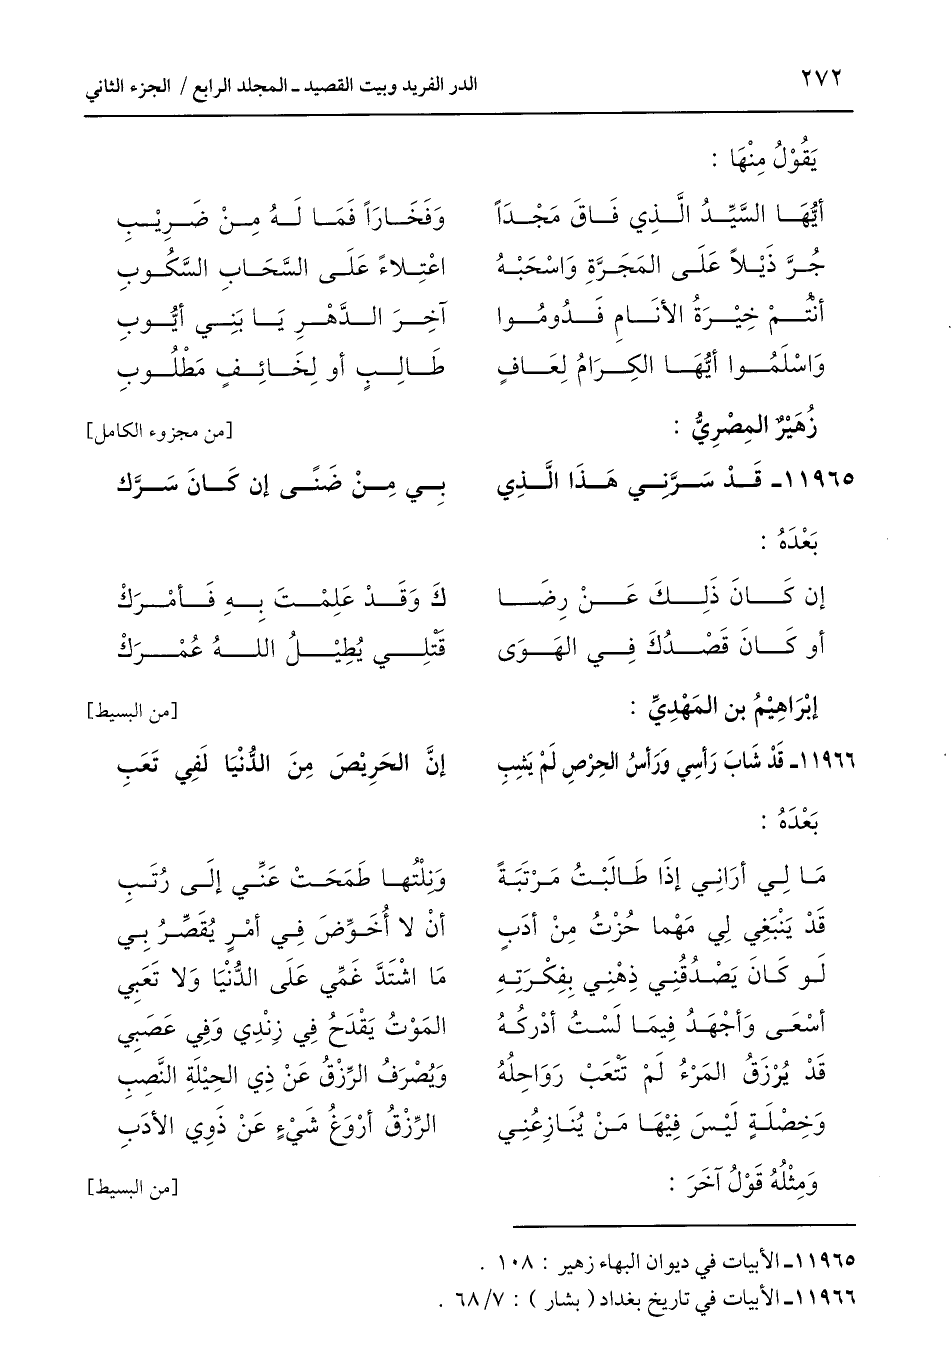 ٢٧٢ الدر الفريد وبيت القصيد ـ المجلد الرابع / الجزء الثاني
يَقُوْلُ مِنْهَا :
أَيُّهَا السَّيِّدُ الَّذِي فَاقَ مَجْدَاً وَفَخَارَاً فَمَا لَهُ مِنْ ضَرِيْبِ
جُرَّ ذَيْلاً عَلَى المَجَرَّةِ وَاسْحَبْهُ اعْتِلاءً عَلَى السَّحَابِ السَّكُوبِ
أَنْتُمْ خِيْرَةُ الأَنَامِ فَدُومُوا آخِرَ الدَّهْرِ يَا بَنِي أَيُّوبِ
وَاسْلَمُوا أَيُّهَا الكِرَامُ لِعَافٍ طَالِبٍ أو لِخَائِفٍ مَطْلُوبِ
زُهَيْرٌ المِصْرِيُّ : [من مجزوء الكامل]
١١٩٦٥ـ قَدْ سَرَّنِي هَذَا الَّذِي بِي مِنْ ضَنًى إن كَانَ سَرَّكَ
بَعْدَهُ :
إن كَانَ ذَلِكَ عَنْ رِضَا كَ وَقَدْ عَلِمْتَ بِهِ فَأَمْرَكْ
أو كَانَ قَصْدُكَ فِي الهَوَى قَتْلِي يُطِيْلُ اللهُ عُمْرَكْ
إبْرَاهِيْمُ بن المَهْدِيِّ : [من البسيط]
١١٩٦٦ـ قَدْ شَابَ رَأسِي وَرَأسُ الحِرْصِ لَمْ يَشِبِ إنَّ الحَرِيْصَ مِنَ الدُّنْيَا لَفِي تَعَبِ
بَعْدَهُ :
مَا لِي أَرَانِي إذَا طَالَبْتُ مَرْتَبَةً وَنِلْتُهَا طَمَحَتْ عَنِّي إلَى رُتَبِ
قَدْ يَنْبَغِي لِي مَهْما حُزْتُ مِنْ أَدَبٍ أَنْ لا أُخَوِّضَ فِي أَمْرٍ يُقَصِّرُ بِي
لَو كَانَ يَصْدُقُنِي ذِهْنِي بِفِكْرَتِهِ مَا اشْتَدَّ غَمِّي عَلَى الدُّنْيَا وَلا تَعَبِي
أَسْعَى وَأَجْهَدُ فِيمَا لَسْتُ أُدْرِكُهُ المَوْتُ يَقْدَحُ فِي زِنْدِي وَفِي عَصَبِي
قَدْ يُرْزَقُ المَرْءُ لَمْ تَتْعَبْ رَوَاحِلُهُ وَيُصْرَفُ الرِّزْقُ عَنْ ذِي الحِيْلَةِ النَّصِبِ
وَخِصْلَةٍ لَيْسَ فِيْهَا مَنْ يُنَازِعُنِي الرِّزْقُ أَرْوَغُ شَيْءٍ عَنْ ذَوِي الأَدَبِ
وَمِثْلُهُ قَوْلُ آخَرَ : [من البسيط]
١١٩٦٥ـ الأبيات في ديوان البهاء زهير : ١٠٨ .
١١٩٦٦ـ الأبيات في تاريخ بغداد ( بشار ) : ٦٨/٧ .